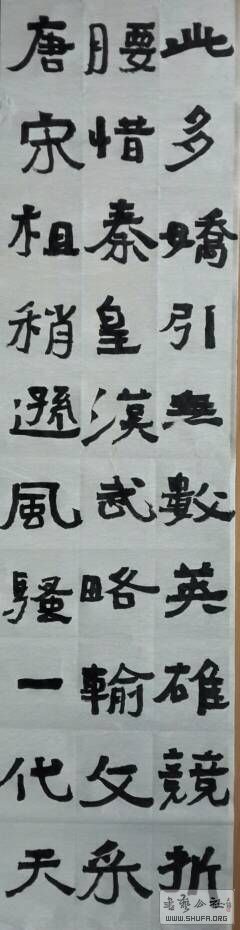 此多嬌引無數英雄競折
腰惜秦皇漢武略輸文采
唐宋祖稍遜風騷一代天
WWW.SHUFA.ORG